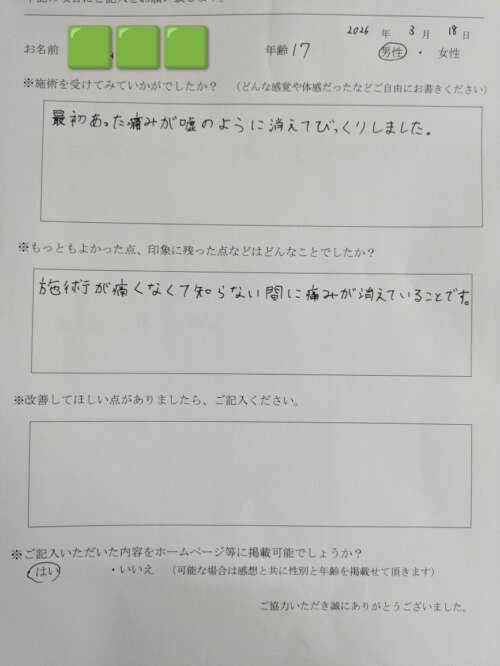 2026 年 3 月 18 日
お名前 年齢 17 男性 ・ 女性
※施術を受けてみていかがでしたか？ （どんな感覚や体感だったなどご自由にお書きください）
最初あった痛みが嘘のように消えてびっくりしました。
※もっともよかった点、印象に残った点などはどんなことでしたか？
施術が痛くなくて知らない間に痛みが消えていることです。
※改善してほしい点がありましたら、ご記入ください。
※ご記入いただいた内容をホームページ等に掲載可能でしょうか？
・はい ・いいえ （可能な場合は感想と共に性別と年齢を掲載せて頂きます）
ご協力いただき誠にありがとうございました。